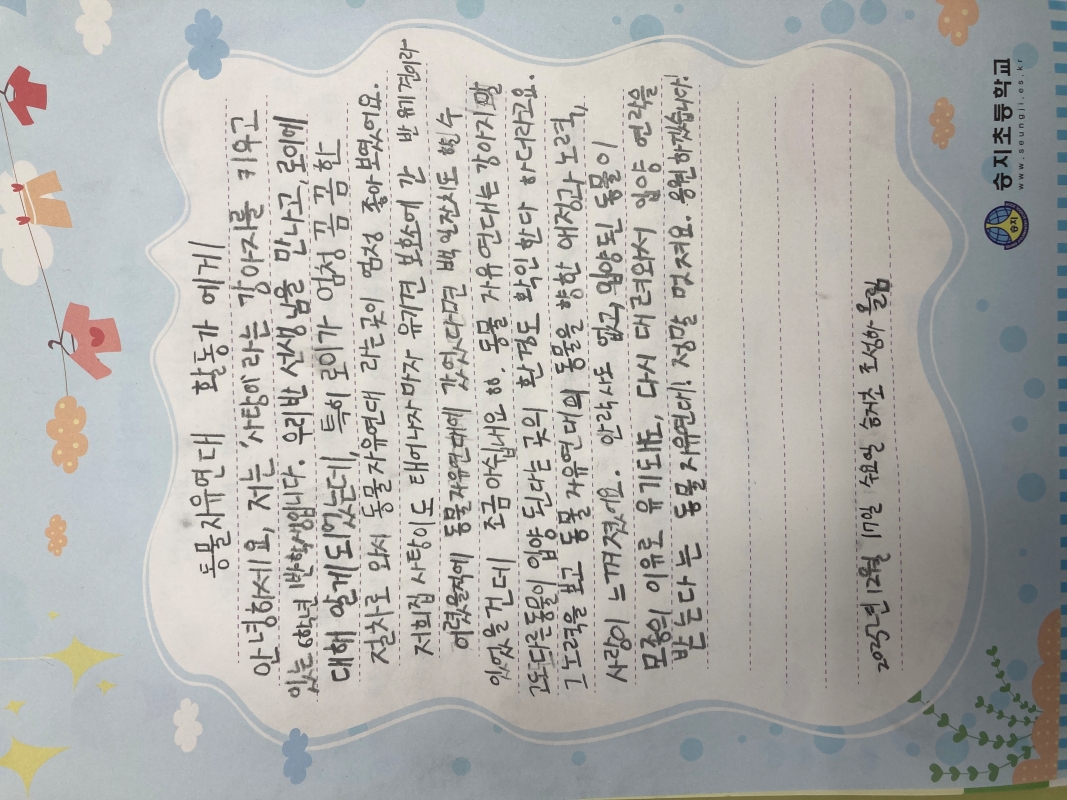 동물자유연대 활동가 에게
안녕하세요, 저는 '사탕이'라는 강아지를 키우고
있는 6학년 1반학생입니다. 우리반 선생님을 만나고, 로이에
대해 알게되었는데, 특히 로이가 엄청 꼼꼼한
절차로 와서 동물자유연대 라는곳이 엄청 좋아 보였어요.
저희집 사탕이도 태어나자마자 유기견 보호소에 간
어렸을적에 동물자유연대에 갔었다면 백일잔치도 할 수
있었을 건데 조금 아쉽네요 ㅠㅠ. 동물 자유연대는 강아지말
고도다른동물이 입양 된다는 곳의 환경도 확인한다 하더라고요.
그 노력을 보고 동물 자유연대의 동물을 향한 애정과 노력,
사랑이 느껴졌어요. 안락사도 없고, 입양된 동물이
모종의 이유로 유기되도, 다시 데려와서 입양 연락을
받는다는 동물자유연대! 정말 멋져요. 응원하겠습니다!
2025년 12월 17일 수요일 승지초 조성아 올림
승지초등학교
www.seungji.es.kr
승지